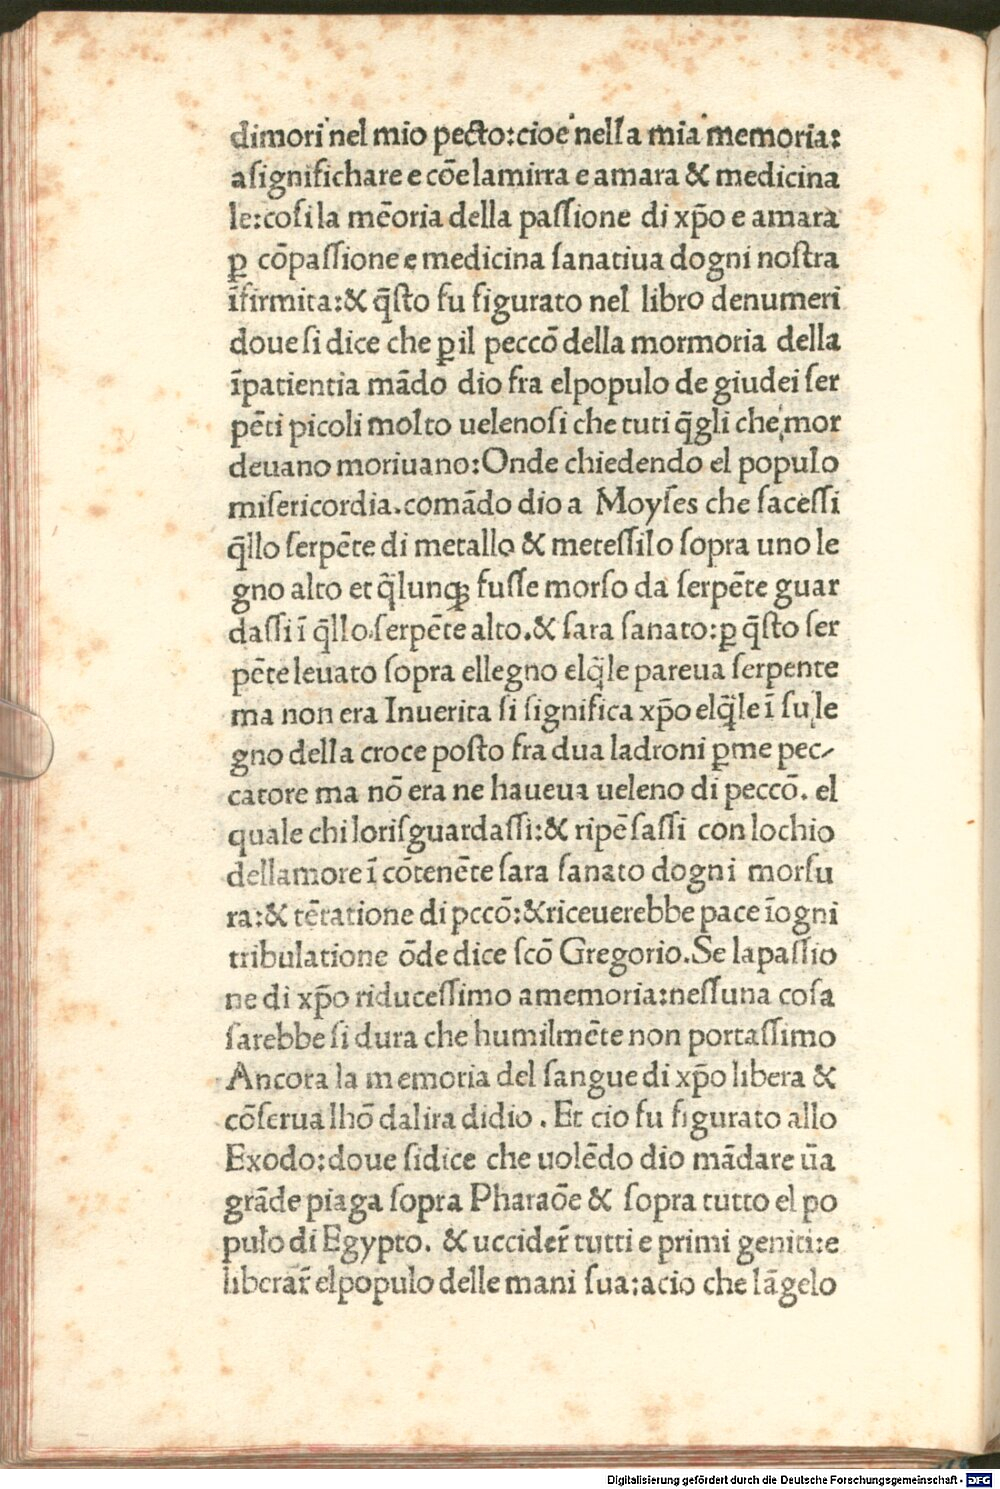 dimori nel mio pecto:cioe nella mia memoria:
a ſignifichare e cōe la mirra e amara & medicina
le:coſi la mēoria della paſſione di xp̄o e amara
ꝑ cōpaſſione e medicina ſanatiua dogni noſtra
īfirmita:& q̄ſto fu figurato nel libro denumeri
doue ſi dice che ꝑ il peccō della mormoria della
īpatientia mādo dio fra el populo de giudei ſer
pēti picoli molto uelenoſi che tuti q̄gli che mor
deuano moriuano:Onde chiedendo el populo
miſericordia.comādo dio a Moyſes che faceſſi
q̄llo ſerpēte di metallo & meteſſilo ſopra uno le
gno alto et q̄lunqꝫ fuſſe morſo da ſerpēte guar
daſſi ī q̄llo ſerpēte alto.& ſara ſanato:ꝑ q̄ſto ſer
pēte leuato ſopra ellegno elq̄le pareua ſerpente
ma non era Inuerita ſi ſignifica xp̄o elq̄le ī ſu le
gno della croce poſto fra dua ladroni ꝑme pec-
catore ma nō era ne haueua ueleno di peccō. el
quale chi lo riſguardaſſi:& ripēſaſſi con lochio
dellamore ī cōtenēte ſara ſanato dogni morſu
ra:& tētatione di pccō:& riceuerebbe pace īogni
tribulatione ōde dice ſcō Gregorio.Se la paſſio
ne di xp̄o riduceſſimo amemoria:neſſuna coſa
ſarebbe ſi dura che humilmēte non portaſſimo
Ancora la memoria del ſangue di xp̄o libera &
cōſerua lhō dalira didio . Et cio fu figurato allo
Exodo:doue ſidice che uolēdo dio mādare ūa
grāde piaga ſopra Pharaōe & ſopra tutto el po
pulo di Egypto. & uccider̄ tutti e primi geniti:e
liberar̄ el populo delle mani ſua:acio che lāgelo
Digitalisierung gefördert durch die Deutsche Forschungsgemeinschaft - DFG